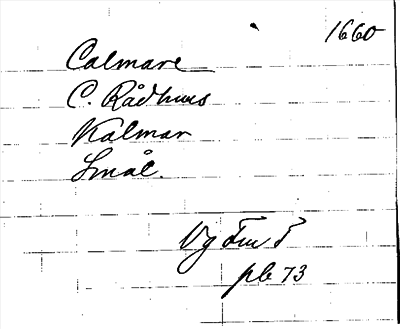 1660
Calmare
C. Rådhuus
Kalmar
Smål.
Vg Fru T
pb 73